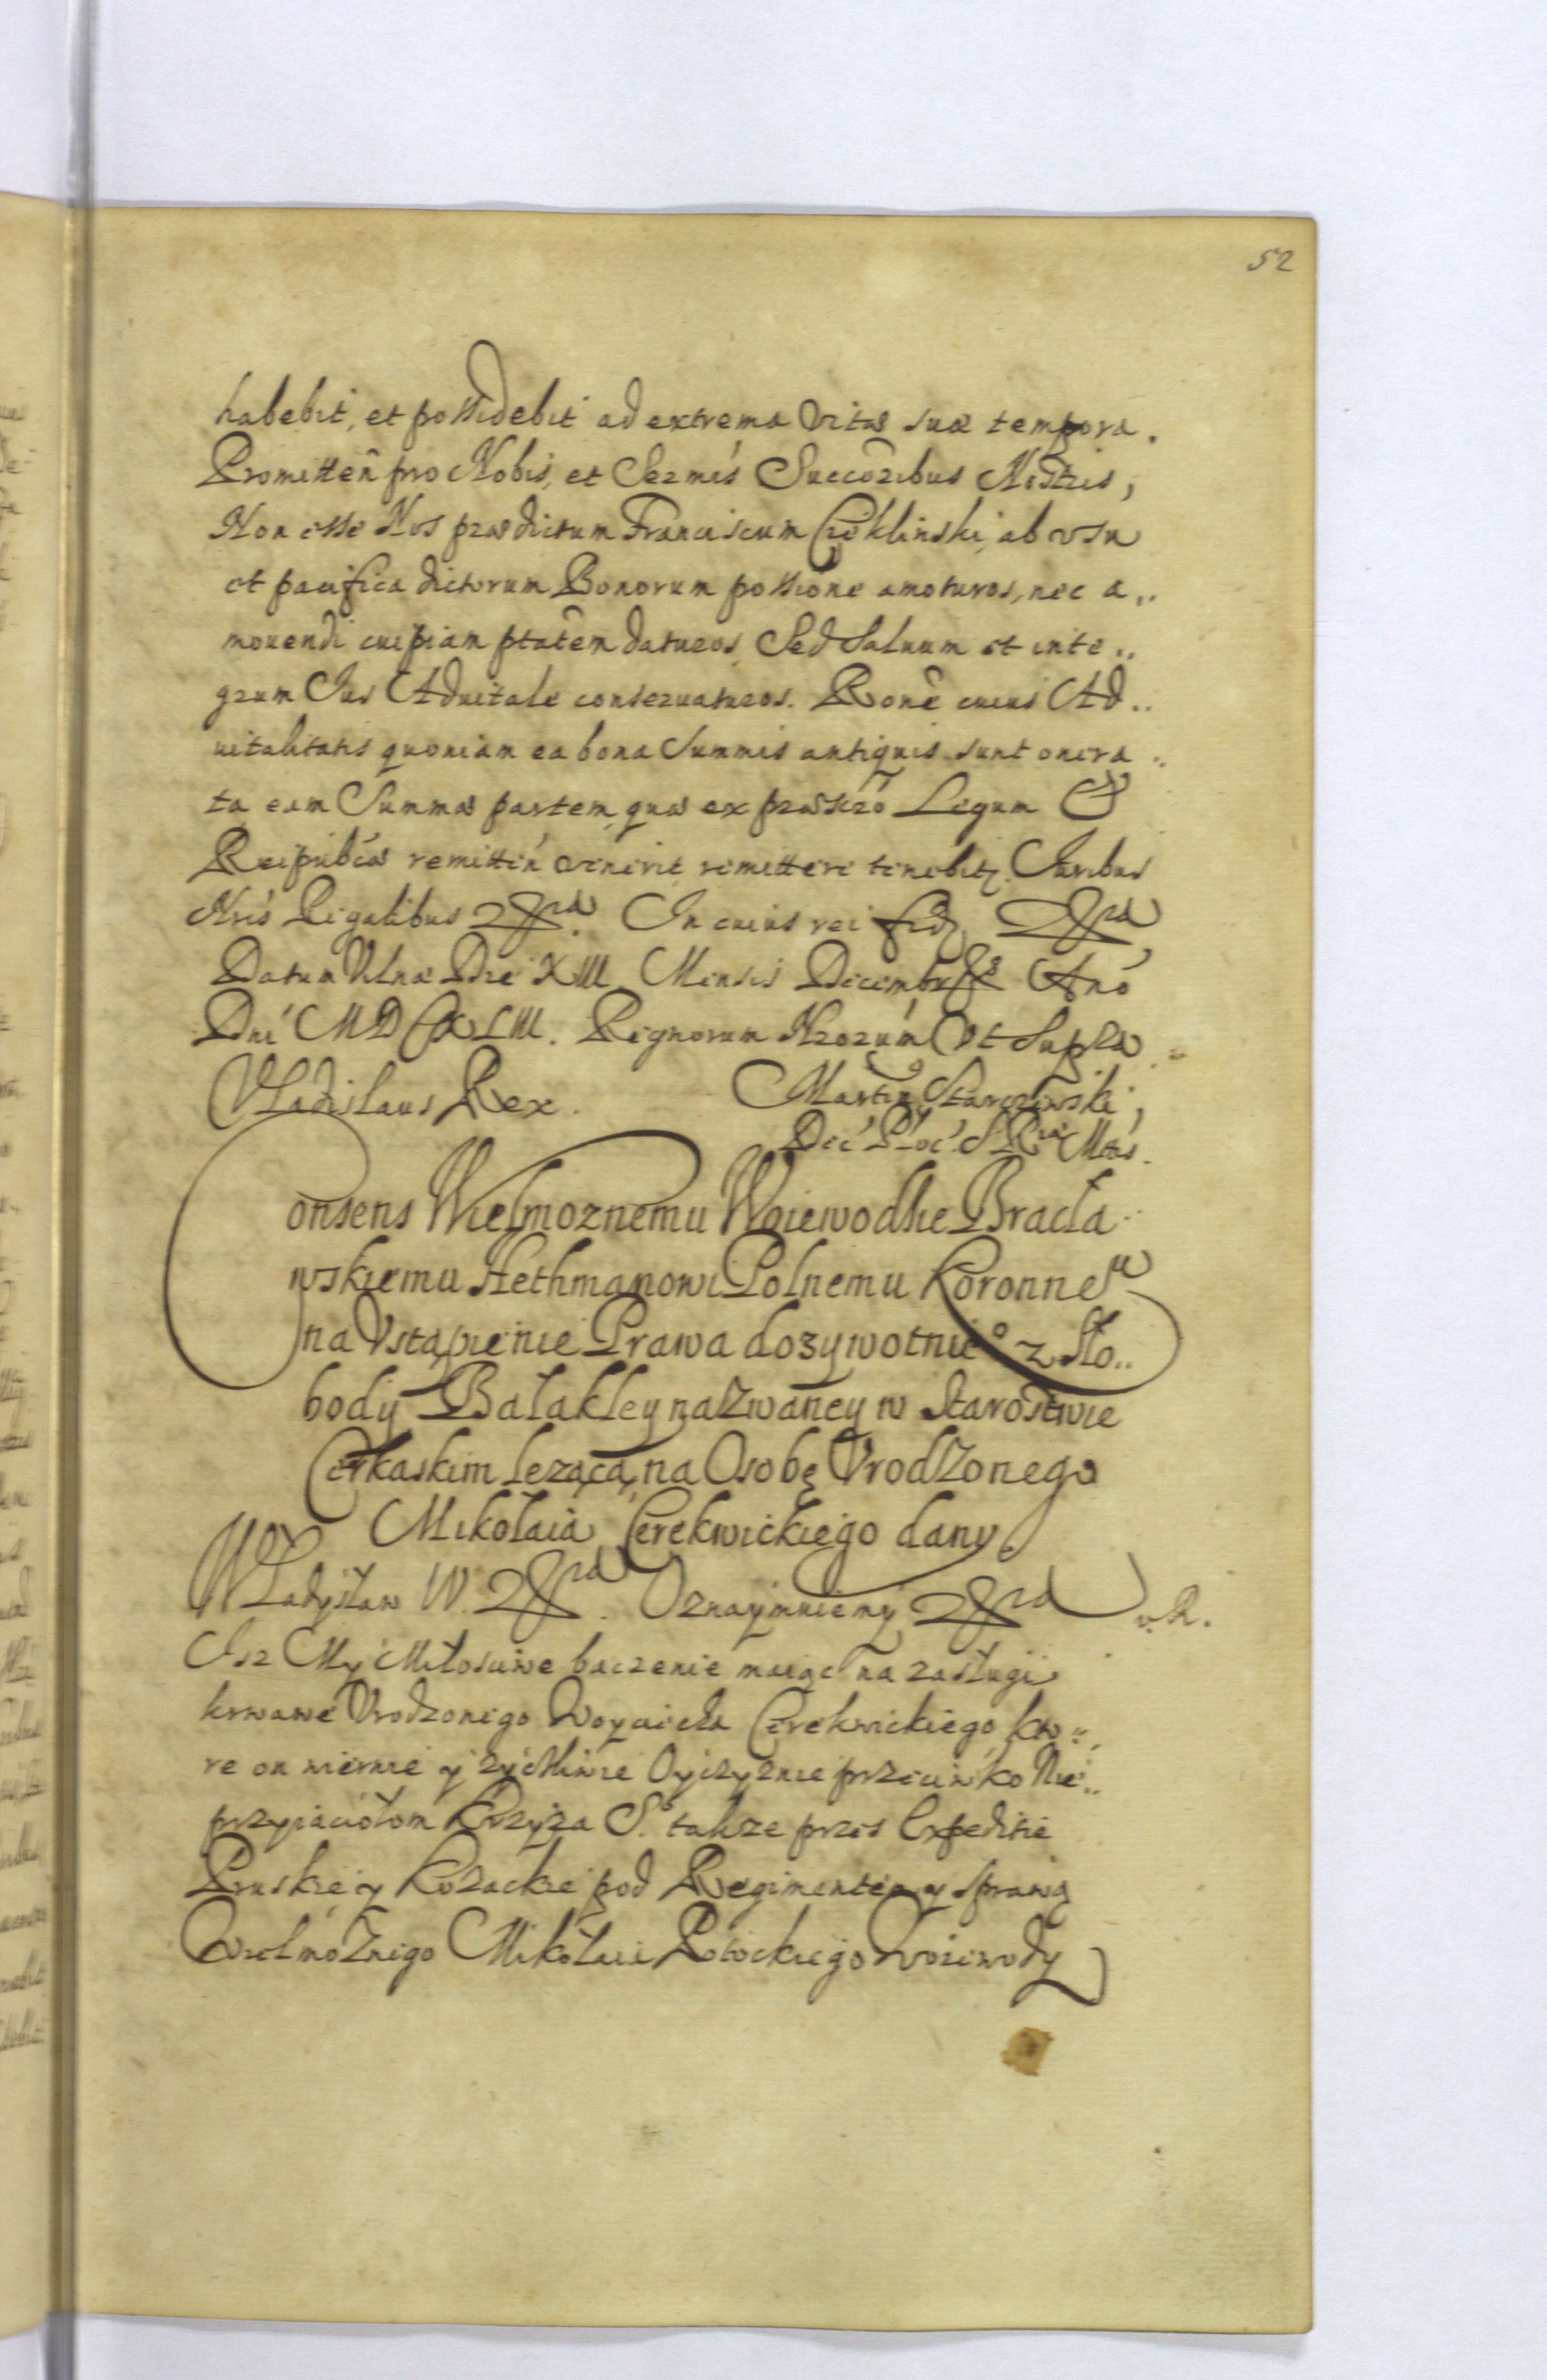 52
habebit, et possidebit ad extrema vitæ suæ tempora.
Promitteñ pro Nobis, et Sermis Succoribus Nostris,
Non esse Nos prædictum Franciscum Ciekliński, ab usu
et pacifica dictorum Bonorum possione amoturos, nec a„
mouendi cuipiam ptatem daturos, Sed Saluum et inte„
grum Ius Aduitale conseruaturos. Rone cuius Ad„
uitalitatis quoniam ea bona Summis antiquis sunt onera„
ta eam Summæ partem, quæ ex præscro Legum &
Reipubcæ remitteń venerit, remittere tenebit. Iuribus
Nris Regalibus &ra. In cuius rei fid &ra
Datum Vilnæ Die XIII Mensis Decembris Anó
Dni MDCXLIII. Regnorum Nrorum Vt Supra
Vladislaus Rex. Martin, Starczewski,
Dec Ploc S R Mtis.
Consens Wielmoznemu Woiewodzie Bracła„
wskiemu Hethmanowi Polnemu Koronneu
na Vstąpienie Prawa dozywotnieo z Sło„
body Bałakley nazwaney w Starostwie
Cerkaskim lezącą, na Osobę Vrodzonego
Mikołaia Cerekwickiego dany
Władysław IV. &ra. Oznaymuiemy &ra w. R.
Isz My Miłosciwe baczenie maiąc na zasługi
krwawe Vrodzonego Woyciecha Cerekwickiego, kto„
re on wiernie y zyczliwie Oyczyznie przeciwko Nie„
przyiaciołom Krzyża S. takze przes Expeditie
Pruskie y Kozackie pod Regimentem y sprawą
Wielmożnego Mikołaia Potockiego Woiewody